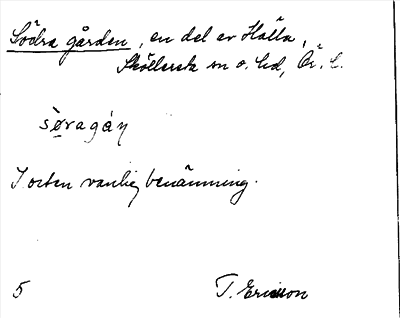 Södra gården, en del av Hälla,
Sköllersta sn o. hd, Ör. l.
sø̀ragáṇ
I orten vanlig benämning.
5 T. Ericsson